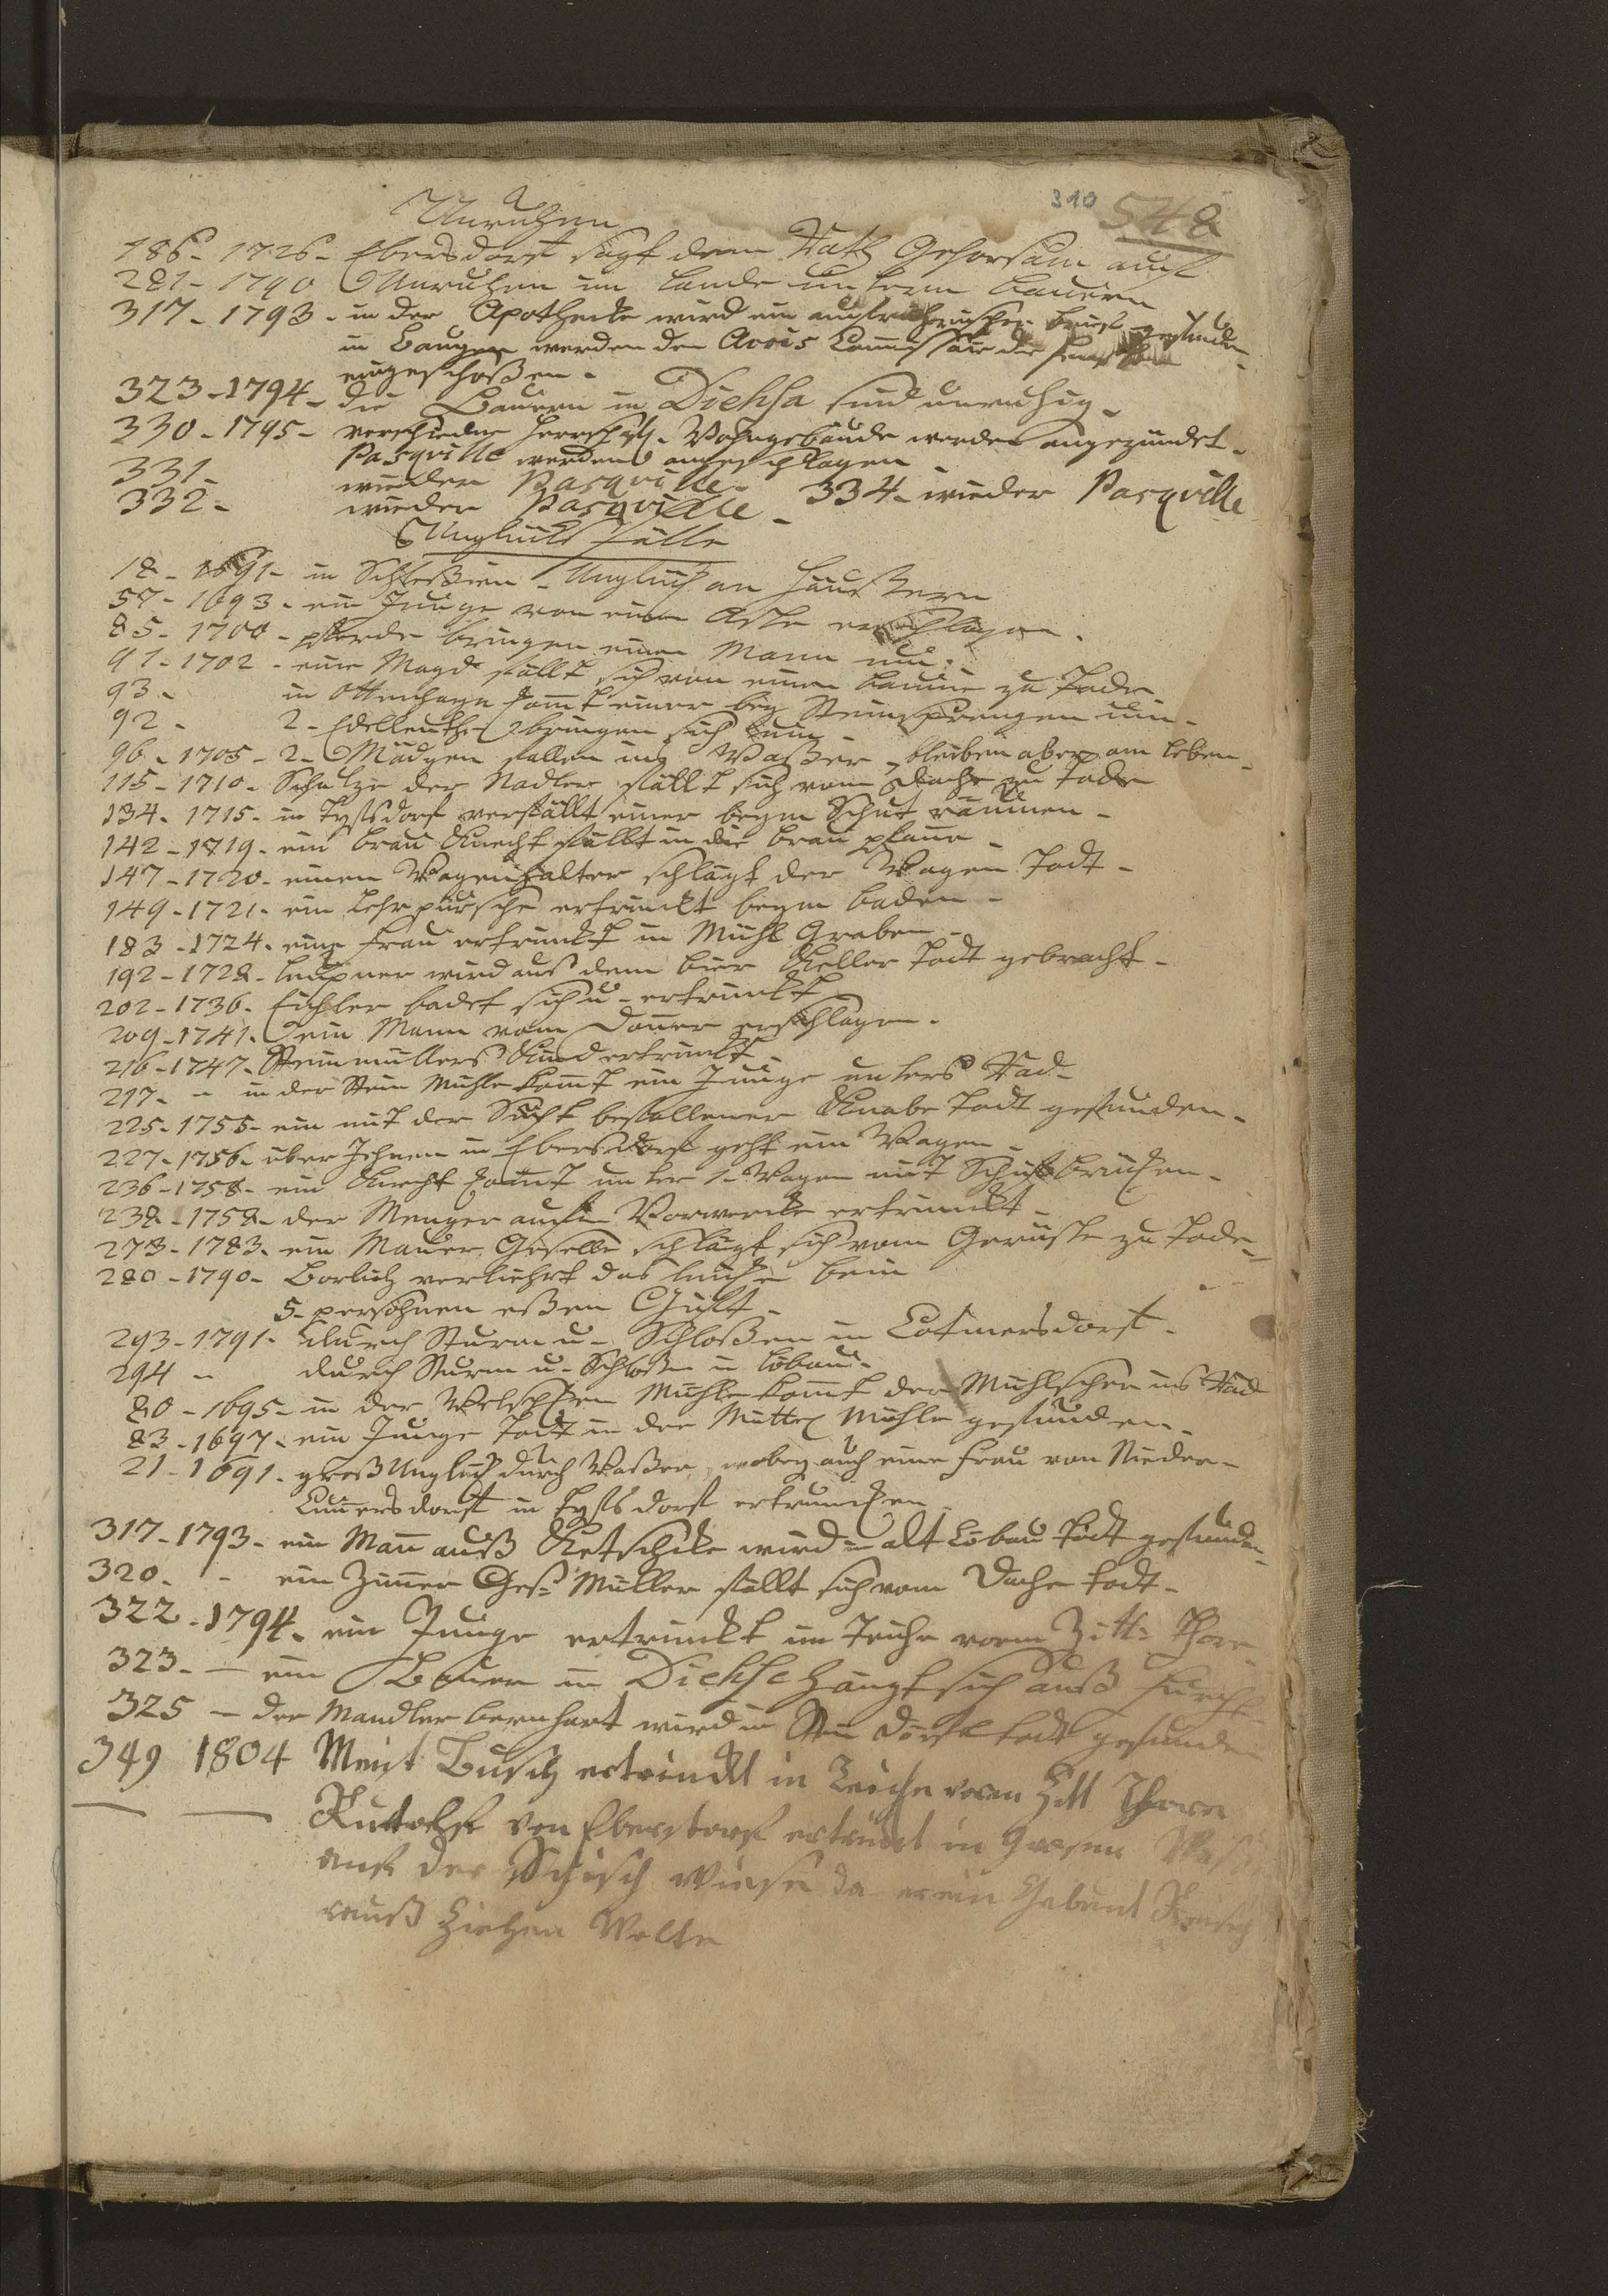 310 548
Unruhen
186 - 1726 - Ebersdorf sagt dem Rath Gehorsam auf
281 - 1790 Unruhen im Lande unterm Bauern
317 - 1793 - in der Apothecke wird ein aufrührerischer brief gefunden -
in Bauzen werden dem Accis Commissair die fenster
eingeschoßen -
323 - 1794 - die Bauern in Diehsa sind unruhig -
330 - 1795 - verschiedne herrschftl. Wohngebäude werden angezündet -
Pasqville werden angeschlagen -
331 - wieder Pasqville - 334 - wieder Pasqville
332 - wieder Pasqville -
Unglücks fälle
18 - 1691 - in Schleßien - Unglück an Häußern
57 - 1693 - ein Junge von einem Aste erschlagen -
85 - 1700 - pferde bringen einen Mann um -
91 - 1702 - eine Magd fällt sich von einem baume zu Tode
93 - in Ottenhayn komt einer bey Steinsprengen um -
92 - 2 - Edelleuthe bringen sich um -
96 - 1705 - 2 - Mädgen fallen ins Waßer, bleiben aber am leben -
115 - 1710 - Schulze der Nadler fällt sich vom Dache zu Tode
134 - 1715 - in verfällt einer beym Schut räumen -
142 - 1719 - ein brau Knecht fällt in die brau pfanne -
147 - 1720 - einen Wagenhalter schlägt der Wagen Todt -
149 - 1721 - ein Lehrpursche ertrinckt beym baden -
183 - 1724 - eine frau ertrinckt im Mühl Graben -
192 - 1728 - wird aus dem bier Keller Todt gebracht -
202 - 1736 - Eichler badet sich u - ertrinckt
209 - 1741 - ein Mann vom Donner erschlagen -
216 - 1747 - Steinmüllers Kind ertrinckt -
217 - " in der Stein Mühle komt ein Junge unters Rad -
225 - 1755 - ein mit der Sucht befallener Knabe Todt gefunden -
227 - 1756 - über Jehnen in Ebersdorf geht ein Wagen -
236 - 1758 - ein Knecht komt unter 1 - Wagen mit
238 - 1758 - der Menger aufm Vorwercke ertrinckt -
273 - 1783 - ein Mauer Geselle schlägt sich vom Gerüste zu Tode -
280 - 1790 - Borlich verliehrt das bein
5 - persohnen eßen Gift -
293 - 1791 - durch Sturm u - Schloßen in Cotmersdorf -
294 " durch Sturm u - Schloßen in Löbau -
80 - 1695 - in der Mühle komt der Mühlscher ins Rad
83 - 1697 - ein Junge todt in der Mittel Mühle gefunden -
21 - 1691 - groß Unglück durch Waßer, wobey auch eine frau von Nieder -
Cunnersdorf in ertruncken
317 - 1793 - ein Mann auß Kretschke wird in alt Löbau todt gefunden -
320 - " ein Zimmer Ges: Müller fällt sich vom Dache todt -
322 - 1794 - ein Junge ertrinckt im Teiche vorm Zitt: Thore
323 - — ein Bauer in Diehse hängt sich auß furcht
325 — der Mandler bernhart wird in todt gefunden
349 1804 Meist Busch ertrinckt in Teiche voren Zitt Thore
— — Rudolf von Eberstorf ertrinckt in Grosen Waßer
auf der wiese da er ein Gebunt
rauß Ziehen Wolte